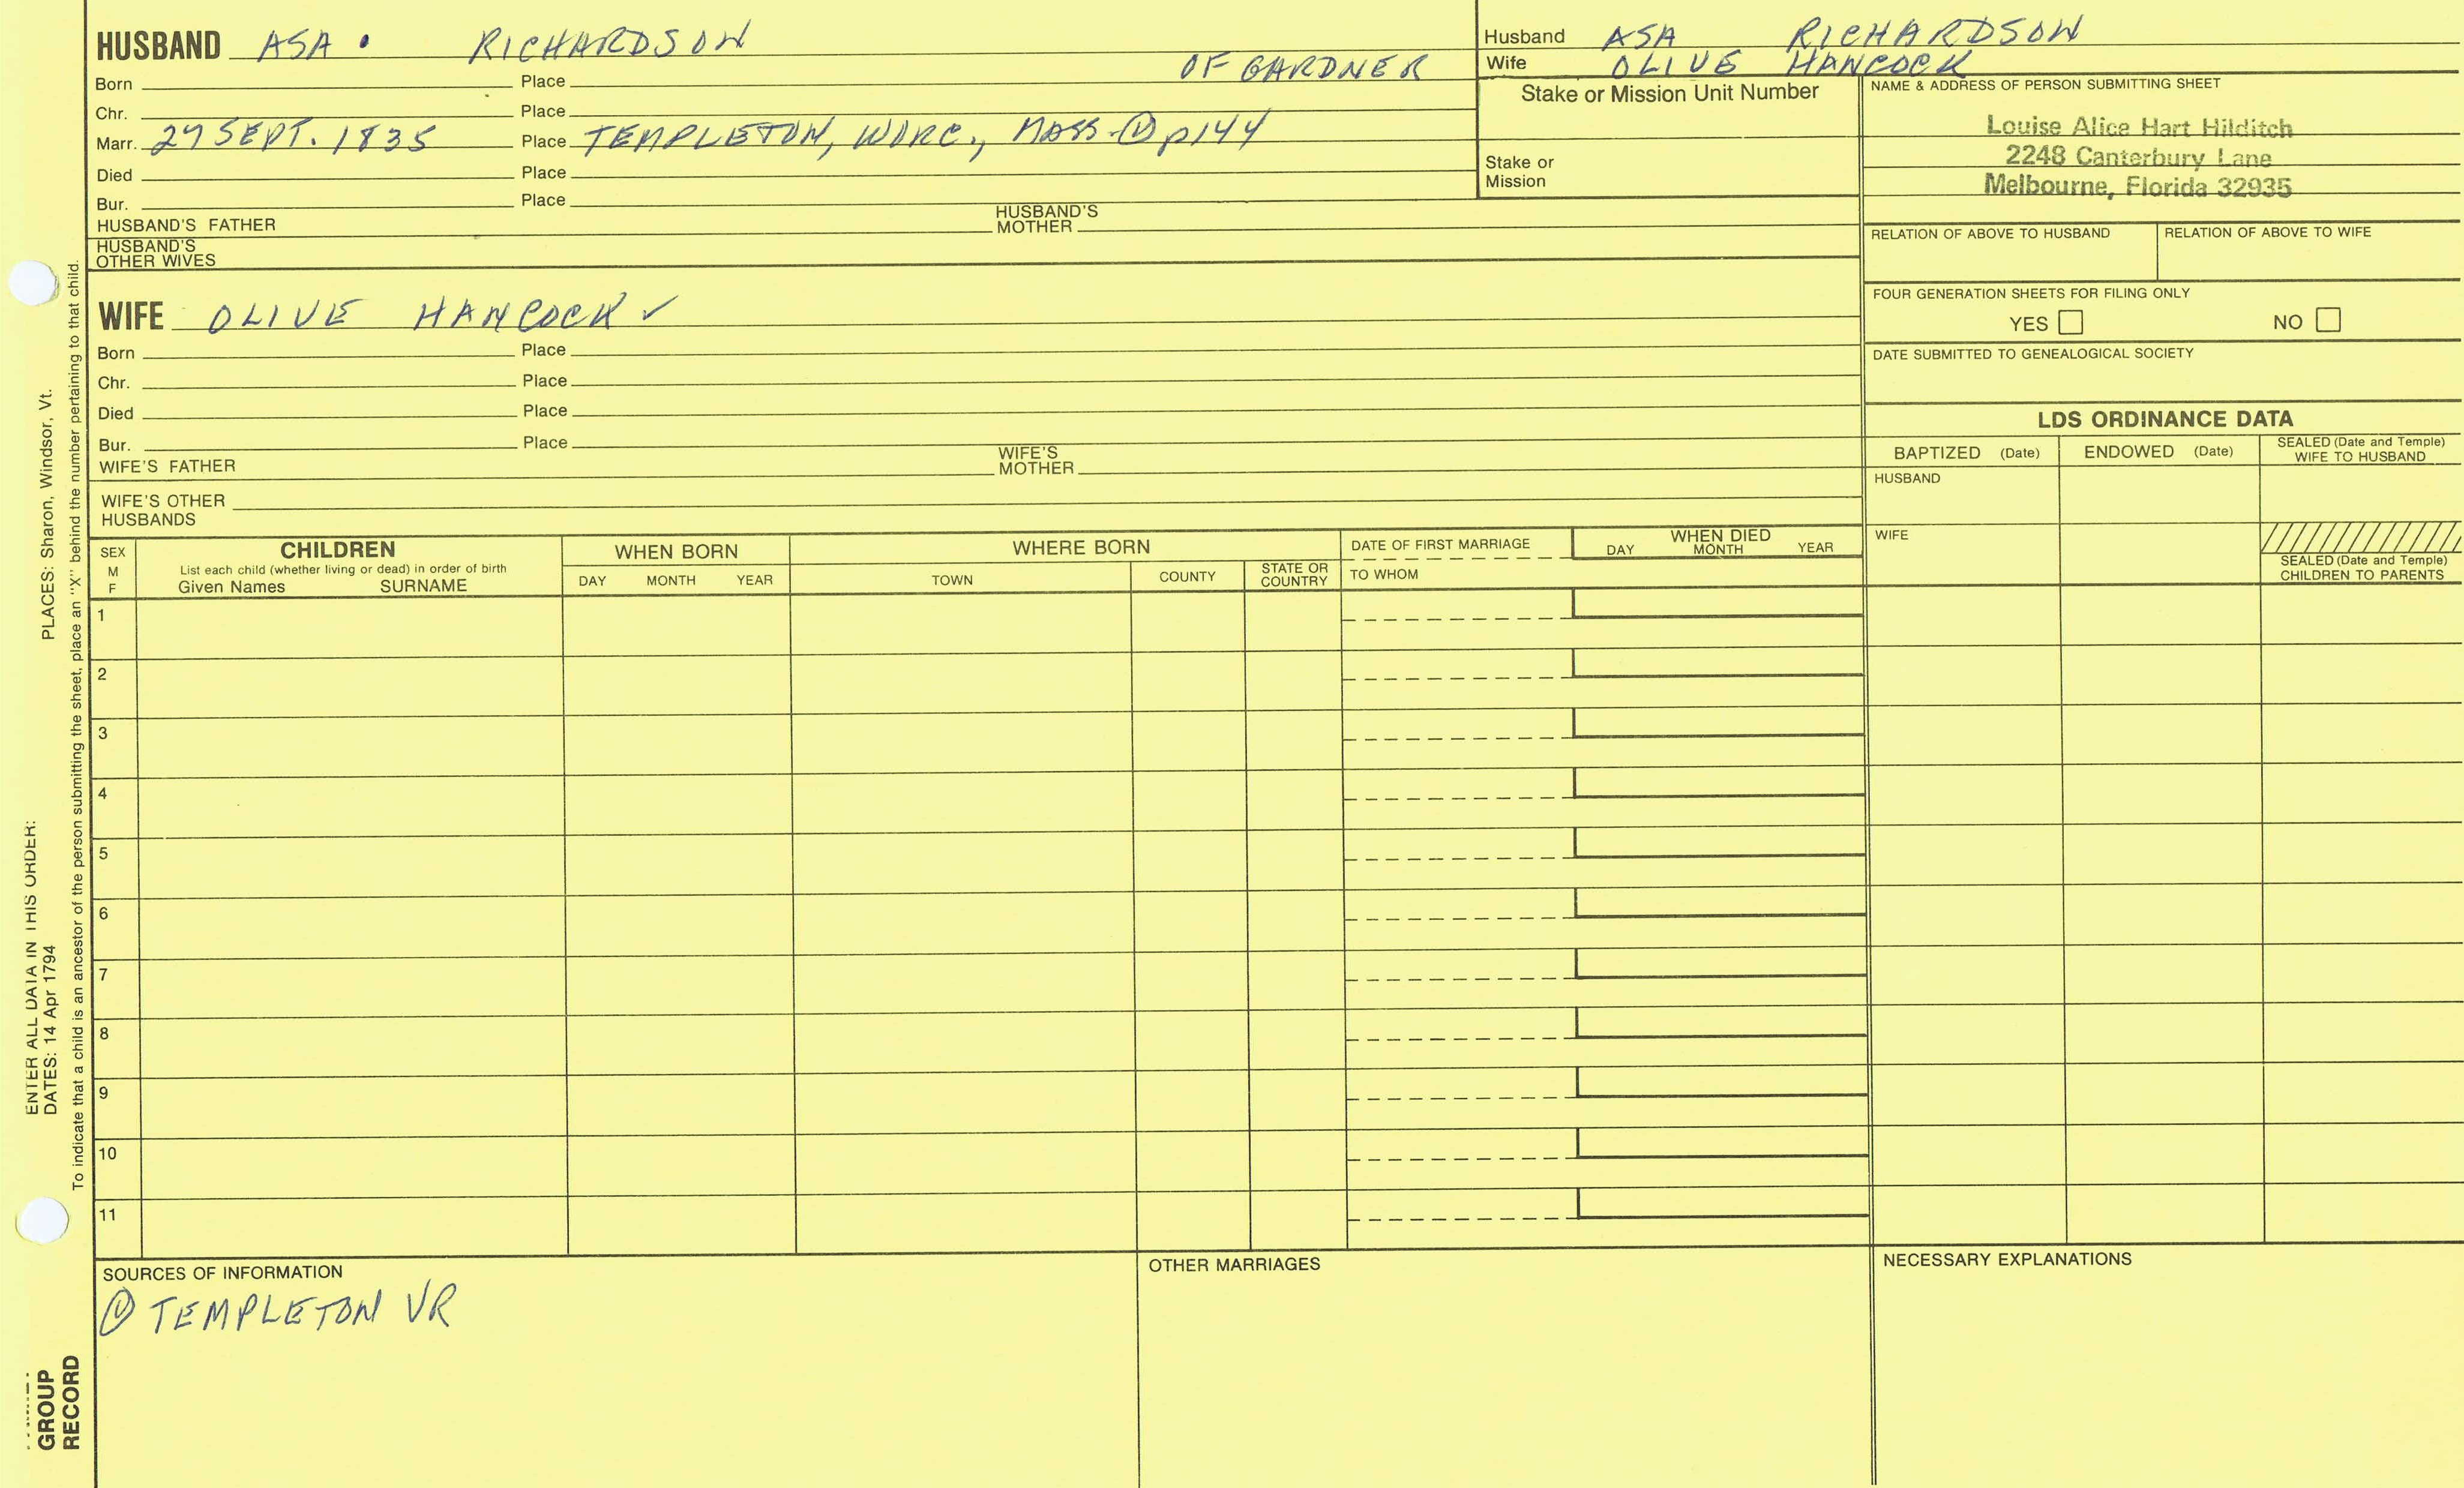 HUSBAND ASA • RICHARDSON
OF GARDNER
Born Place
Chr. Place
Marr. 27 SEPT. 1835 Place TEMPLETON, WORC., MASS ① p144
Died Place
Bur. Place
HUSBAND'S FATHER HUSBAND'S MOTHER
HUSBAND'S OTHER WIVES
Husband ASA RICHARDSON
Wife OLIVE HANCOCK
Stake or Mission Unit Number
Stake or Mission
NAME & ADDRESS OF PERSON SUBMITTING SHEET
Louise Alice Hart Hilditch
2248 Canterbury Lane
Melbourne, Florida 32935
RELATION OF ABOVE TO HUSBAND RELATION OF ABOVE TO WIFE
FOUR GENERATION SHEETS FOR FILING ONLY
YES NO
DATE SUBMITTED TO GENEALOGICAL SOCIETY
WIFE OLIVE HANCOCK ✓
Born Place
Chr. Place
Died Place
Bur. Place
WIFE'S FATHER WIFE'S MOTHER
WIFE'S OTHER HUSBANDS
LDS ORDINANCE DATA
BAPTIZED (Date) ENDOWED (Date) SEALED (Date and Temple) WIFE TO HUSBAND
HUSBAND
WIFE
SEALED (Date and Temple) CHILDREN TO PARENTS
SEX M F
CHILDREN
List each child (whether living or dead) in order of birth
Given Names SURNAME
WHEN BORN
DAY MONTH YEAR
WHERE BORN
TOWN COUNTY STATE OR COUNTRY
DATE OF FIRST MARRIAGE
TO WHOM
WHEN DIED
DAY MONTH YEAR
1
2
3
4
5
6
7
8
9
10
11
SOURCES OF INFORMATION
① TEMPLETON VR
OTHER MARRIAGES
NECESSARY EXPLANATIONS
ENTER ALL DATA IN THIS ORDER:
DATES: 14 Apr 1794 PLACES: Sharon, Windsor, Vt.
To indicate that a child is an ancestor of the person submitting the sheet, place an "X" behind the number pertaining to that child.
GROUP
RECORD